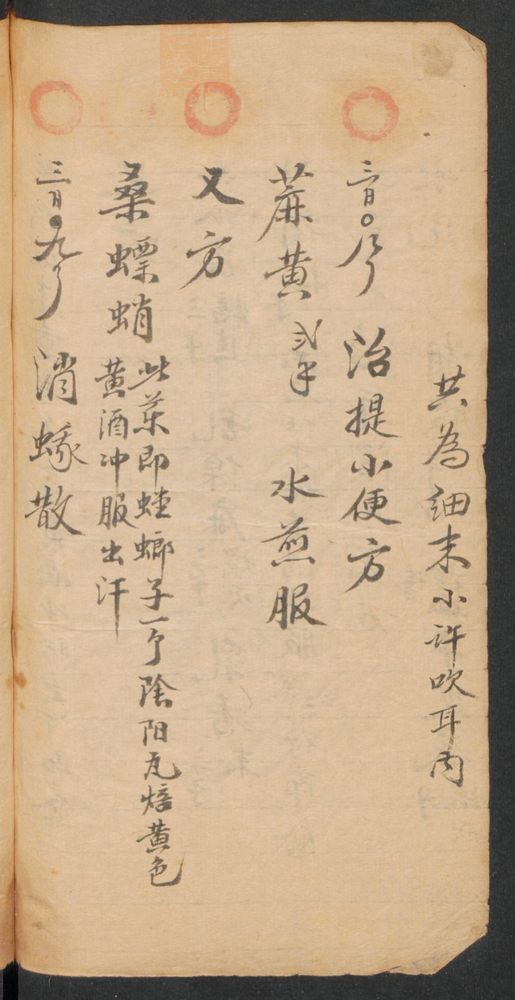 共為细末小许吹耳内
三百〇八个 治提小便方
蔴黄 弍手 水煎服
又方
桑螵蛸 此药即螳螂子一个陰阳瓦焙黄色
黄酒冲服出汗
三百〇九个 消蛾散